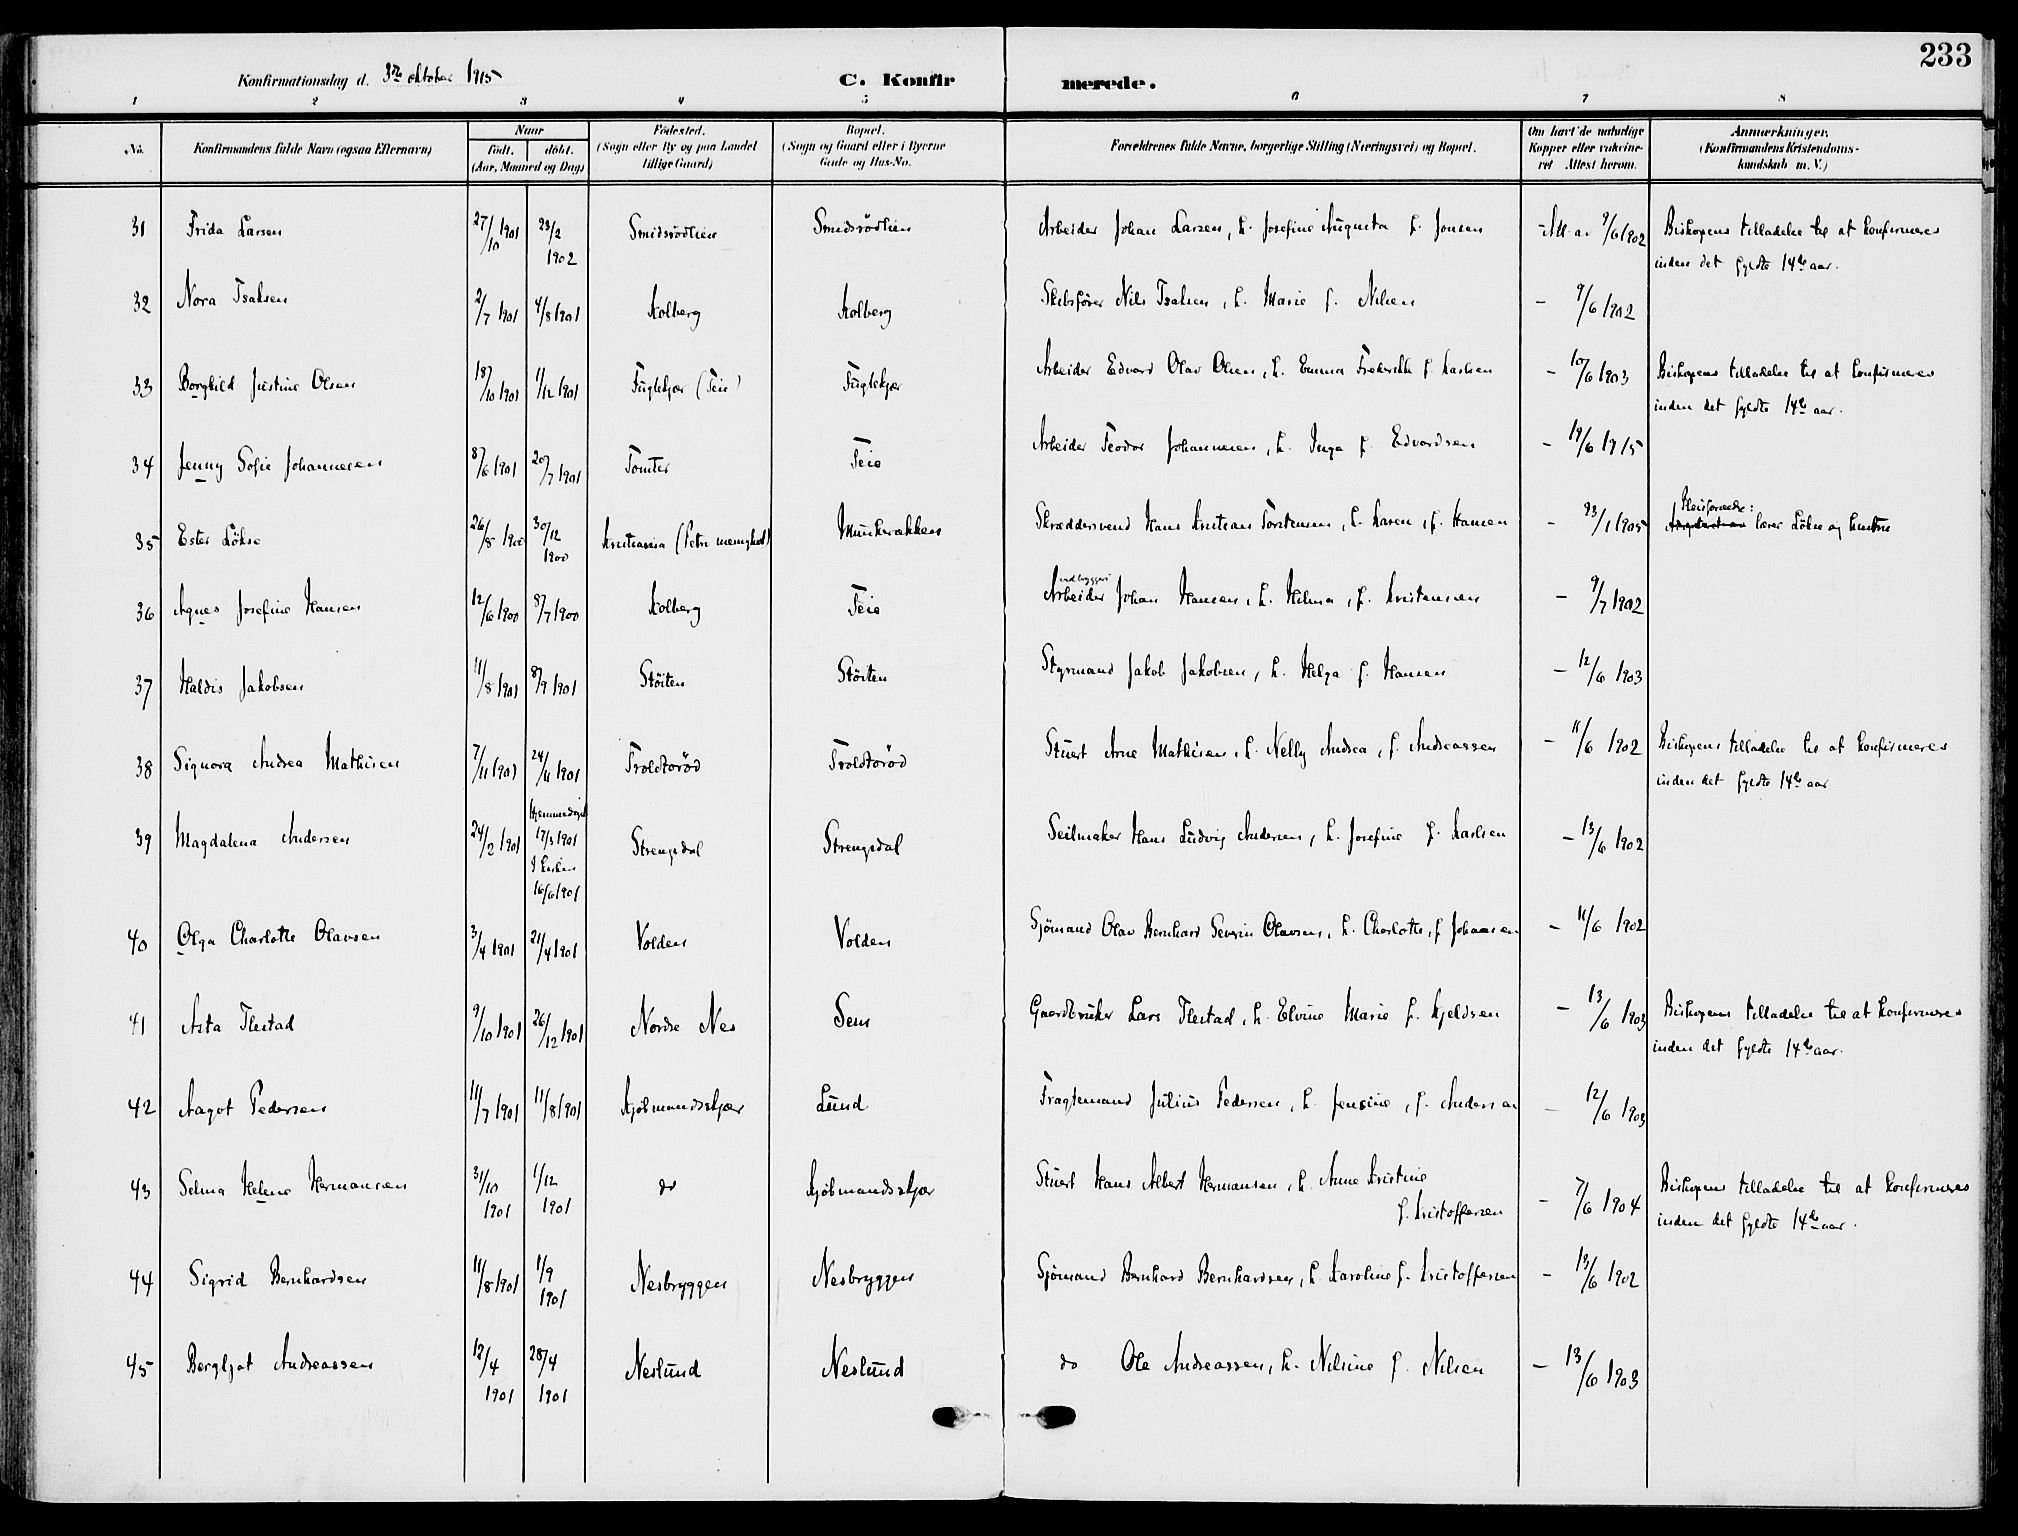 233
Konfirmationsdag d. 3die oktober 1915 C. Konfirmerede.
1 2 3 4 5 6 7 8
No. Konfirmandens fulde Navn (ogsaa Efternavn) Naar født. døbt. (Aar, Maaned og Dag) Fødested. (Sogn eller By og paa Landet tillige Gaard) Bopæl. (Sogn og Gaard eller i Byerne Gade og Hus-No. Forældrenes fulde Navne, borgerlige Stilling (Næringsvei) og Bopæl. Om havt de naturlige Kopper eller vakcineret Attest herom. Anmærkninger. (Konfirmandens Kristendomskundskab m. V.)
31 Frida Larsen 27/10 1901 23/2 1902 Smidsrödlien Smidsrödlien Arbeider Johan Larsen, h. Josefine Augusta f. Jonsen Att. av 9/6 1902 Biskopens tilladelse til at konfirmeres
inden det fyldte 14de aar.
32 Nora Isaksen 2/7 1901 4/8 1901 Kolberg Kolberg Skibsfører Nils Isaksen, h. Marie f. Nilsen - 9/6 1902
33 Borghild Justine Olsen 18/10 1901 1/12 1901 Fuglekjær (Teie) Fuglekjær Arbeider Edvard Olav Olsen, h. Emma Fredrikke f. Karlsen - 10/6 1903 Biskopens tilladelse til at konfirmeres
inden det fyldte 14de aar.
34 Jenny Sofie Johannesen 8/6 1901 20/7 1901 Tomter Teie Arbeider Teodor Johannesen, h. Inga f. Edvardsen - 19/6 1915
35 Ester Lökse 26/8 1900 30/12 1900 Kristiania (Petri menighed) Munkerækken Skræddersvend Hans Kristian Torstensen, h. Karen, f. Hansen - 23/1 1905 Pleieforældre:
lærer Lökse og hustru
36 Agnes Josefine Hansen 12/6 1900 8/7 1900 Kolberg Teie Arbeider Johan Hansen, h. Hilma, f. Kristensen - 9/7 1902
37 Haldis Jakobsen 11/8 1901 8/9 1901 Stöiten Stöiten Styrmand Jakob Jakobsen, h. Helga f. Hansen - 12/6 1903
38 Signora Andrea Mathisen 7/11 1901 24/11 1901 Troldsröd Troldsröd Stuert Arne Mathisen, h. Nelly Andrea, f. Andreassen - 11/6 1902 Biskopens tilladelse til at konfirmeres
inden det fyldte 14de aar
39 Magdalena Andersen 24/2 1901 Hjemmedøpt 17/3 1901 I kirken 16/6 1901 Strengsdal Strengsdal Seilmaker Hans Ludvig Andersen, h. Josefine f. Karlsen - 13/6 1902
40 Olga Charlotte Olavsen 3/4 1901 21/4 1901 Volden Volden Sjömand Olav Bernhard Severin Olavsen, h. Charlotte, f. Johansen - 11/6 1902
41 Asta Ilestad 9/10 1901 26/12 1901 Nordre Nes Sem Gaardbruker Lars Ilestad, h. Elvine Marie f. Kjeldsen - 13/6 1903 Biskopens tilladelse til at konfirmeres
inden det fyldte 14de aar.
42 Aagot Pedersen 11/7 1901 11/8 1901 Kjöbmandsskjær Lund Fragtemand Julius Pedersen, h. Jensine, f. Andersen - 12/6 1903
43 Selma Helene Hermansen 31/10 1901 1/12 1901 do Kjöbmandsskjær Stuert Hans Albert Hermansen, h. Anne Kristine
f. Kristoffersen - 7/6 1904 Biskopens tilladelse til at konfirmeres
inden det fyldte 14de aar.
44 Sigrid Bernhardsen 11/8 1901 1/9 1901 Nesbryggen Nesbryggen Sjömand Bernhard Bernhardsen, h. Karoline f. Kristoffersen - 13/6 1902
45 Bergljot Andreassen 12/4 1901 28/4 1901 Neslund Neslund do Ole Andreassen, h. Nilsine f. Nilsen - 13/6 1903